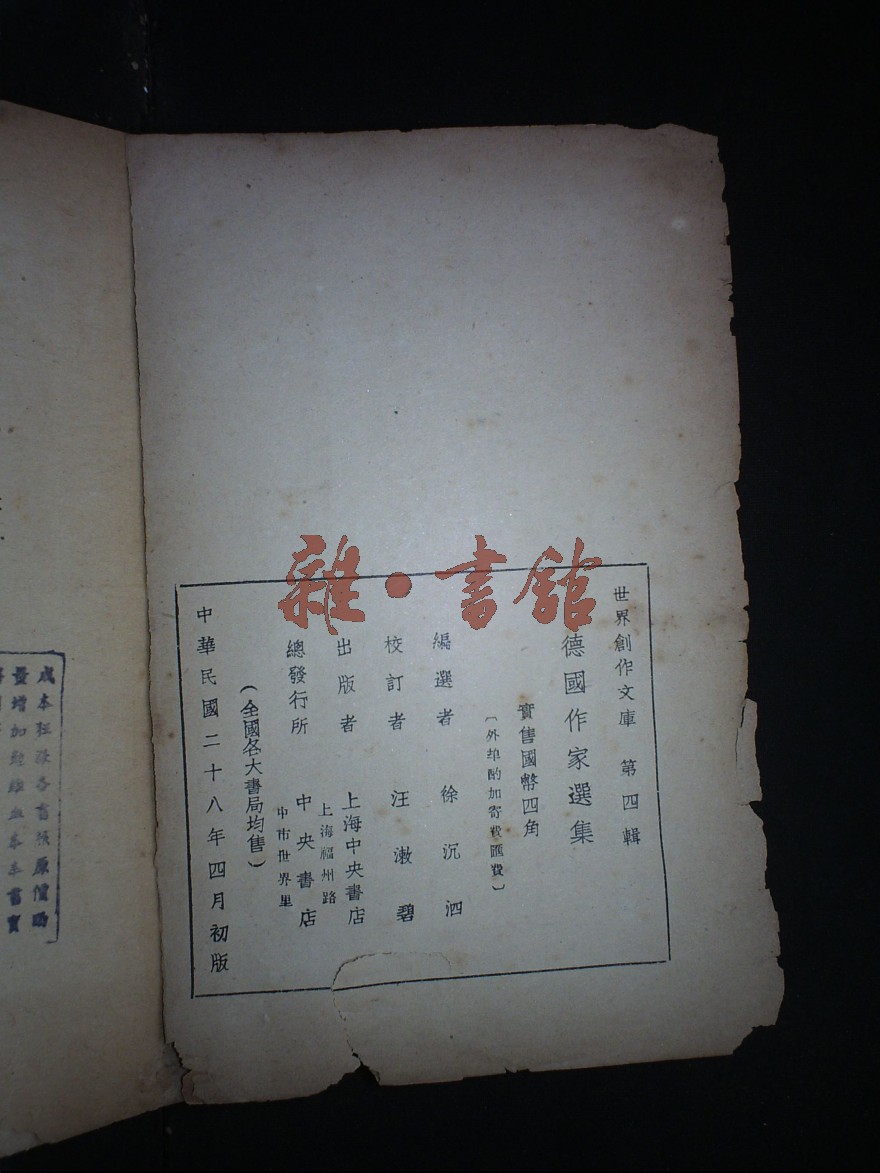 世界創作文庫 第四輯
德國作家選集
實售國幣四角
〔外埠酌加寄費匯費〕
編選者 徐沉泗
校訂者 汪漱碧
出版者 上海中央書店
總發行所 上海福州路
中市世界里 中央書店
(全國各大書局均售)
中華民國二十八年四月初版
雜·書館